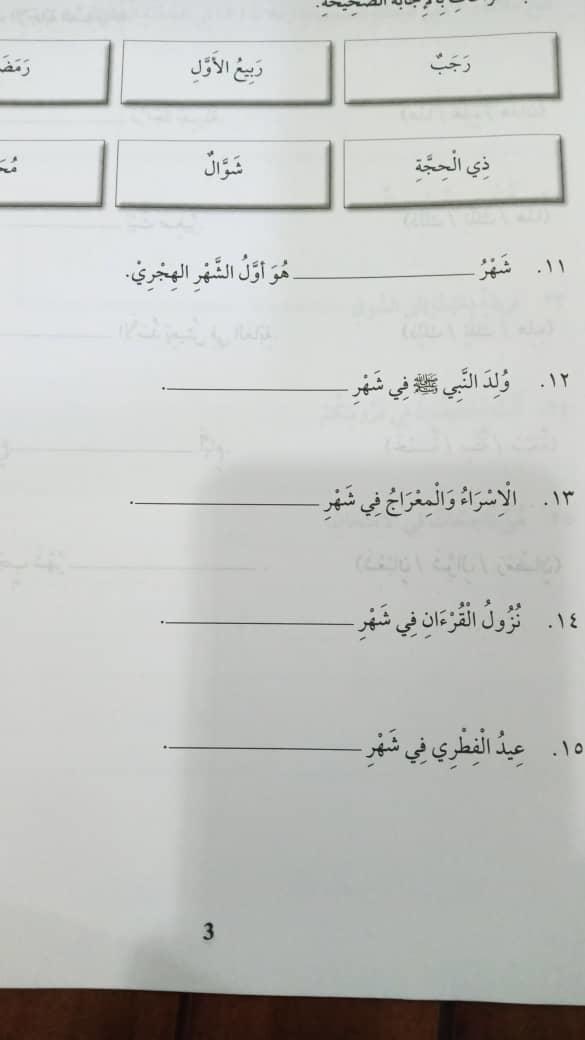 بِالإِجَابَةِ الصَّحِيْحَةِ.
رَجَبٌ رَبِيعُ الأَوَّلِ
ذِي الْحِجَّةِ شَوَّالٌ
١١. شَهْرُ ________ هُوَ أَوَّلُ الشَّهْرِ الهِجْرِيْ.
١٢. وُلِدَ النَّبِي ﷺ فِي شَهْرِ ________.
١٣. الْإِسْرَاءُ وَالْمِعْرَاجُ فِي شَهْرِ ________.
١٤. نُزُولُ الْقُرْءَانِ فِي شَهْرِ ________.
١٥. عِيدُ الْفِطْرِي فِي شَهْرِ ________.
3